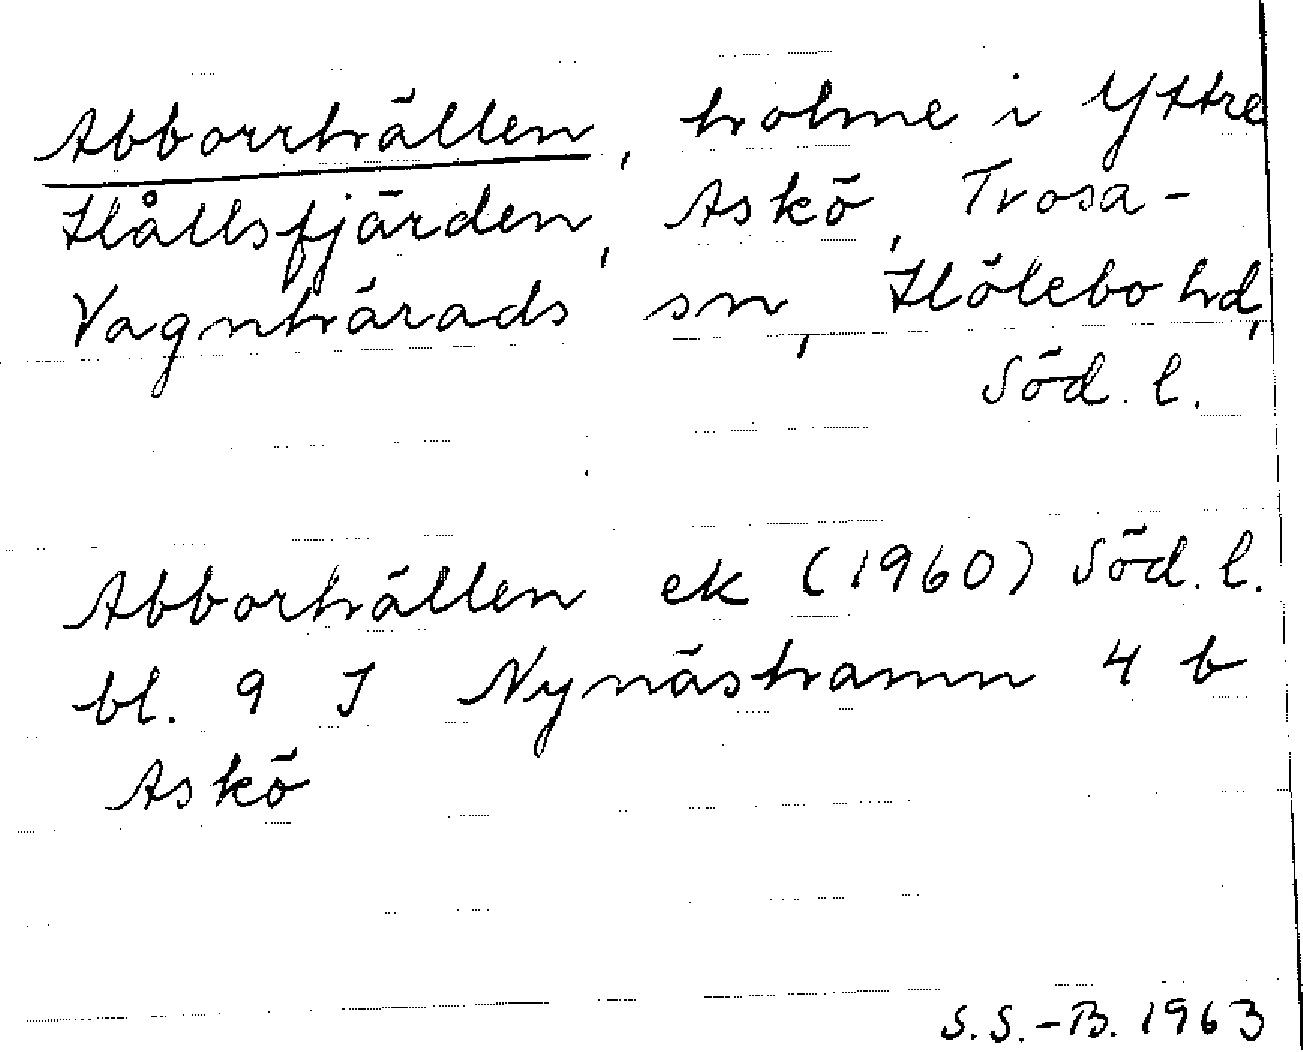 Abborrhällen, holme i Yttre
Hållsfjärden, Askö, Trosa-
Vagnhärads sn, Hölebo hd,
Söd. l.
Abborhällen ek (1960) Söd. l.
bl. 9 I Nynäshamn 4 b
Askö
S.S.-B. 1963